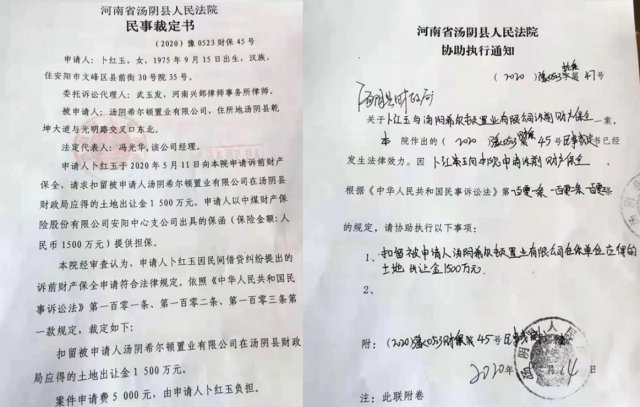 河南省汤阴县人民法院
民事裁定书
（2020）豫 0523 财保 45 号
申请人：卜红玉，女，1975 年 9 月 15 日出生，汉族，
住安阳市文峰区县前街 30 号院 35 号。
委托诉讼代理人：武玉发，河南兴邺律师事务所律师。
被申请人：汤阴希尔顿置业有限公司，住所地汤阴县乾
坤大道与光明路交叉口东北。
法定代表人：冯光华，该公司经理。
申请人卜红玉于 2020 年 5 月 11 日向本院申请诉前财产
保全，请求扣留被申请人汤阴希尔顿置业有限公司在汤阴县
财政局应得的土地出让金 1 500 万元。申请人以中煤财产保
险股份有限公司安阳中心支公司出具的保函（保险金额:人
民币 1500 万元）提供担保。
本院经审查认为，申请人卜红玉因民间借贷纠纷提出的
诉前财产保全申请符合法律规定。依照《中华人民共和国民
事诉讼法》第一百零一条、第一百零二条、第一百零三条第
一款规定，裁定如下：
扣留被申请人汤阴希尔顿置业有限公司在汤阴县财政
局应得的土地出让金 1 500 万元。
案件申请费 5 000 元，由申请人卜红玉负担。
河南省汤阴县人民法院
协助执行通知
（2020）豫0523 47号
汤阴县财政局
关于卜红玉与汤阴希尔顿置业有限公司诉前财产保全一案，
本 院作出的（2020）豫0523财保45号民事裁定书已经
发生法律效力。因 卜红玉向本院申请诉前财产保全。
根据《中华人民共和国民事诉讼法》第一百零一条、一百零二条、一百零三条
的规定，请协助执行以下事项：
1、扣留被申请人汤阴希尔顿置业有限公司在你单位应得的
土地出让金1500万元。
2、
附：（2020）豫0523财保45号民事裁定书
2020年 14日
注：此联附卷